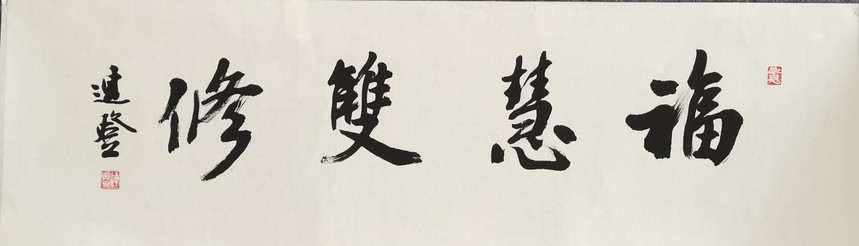 福慧雙修
連登